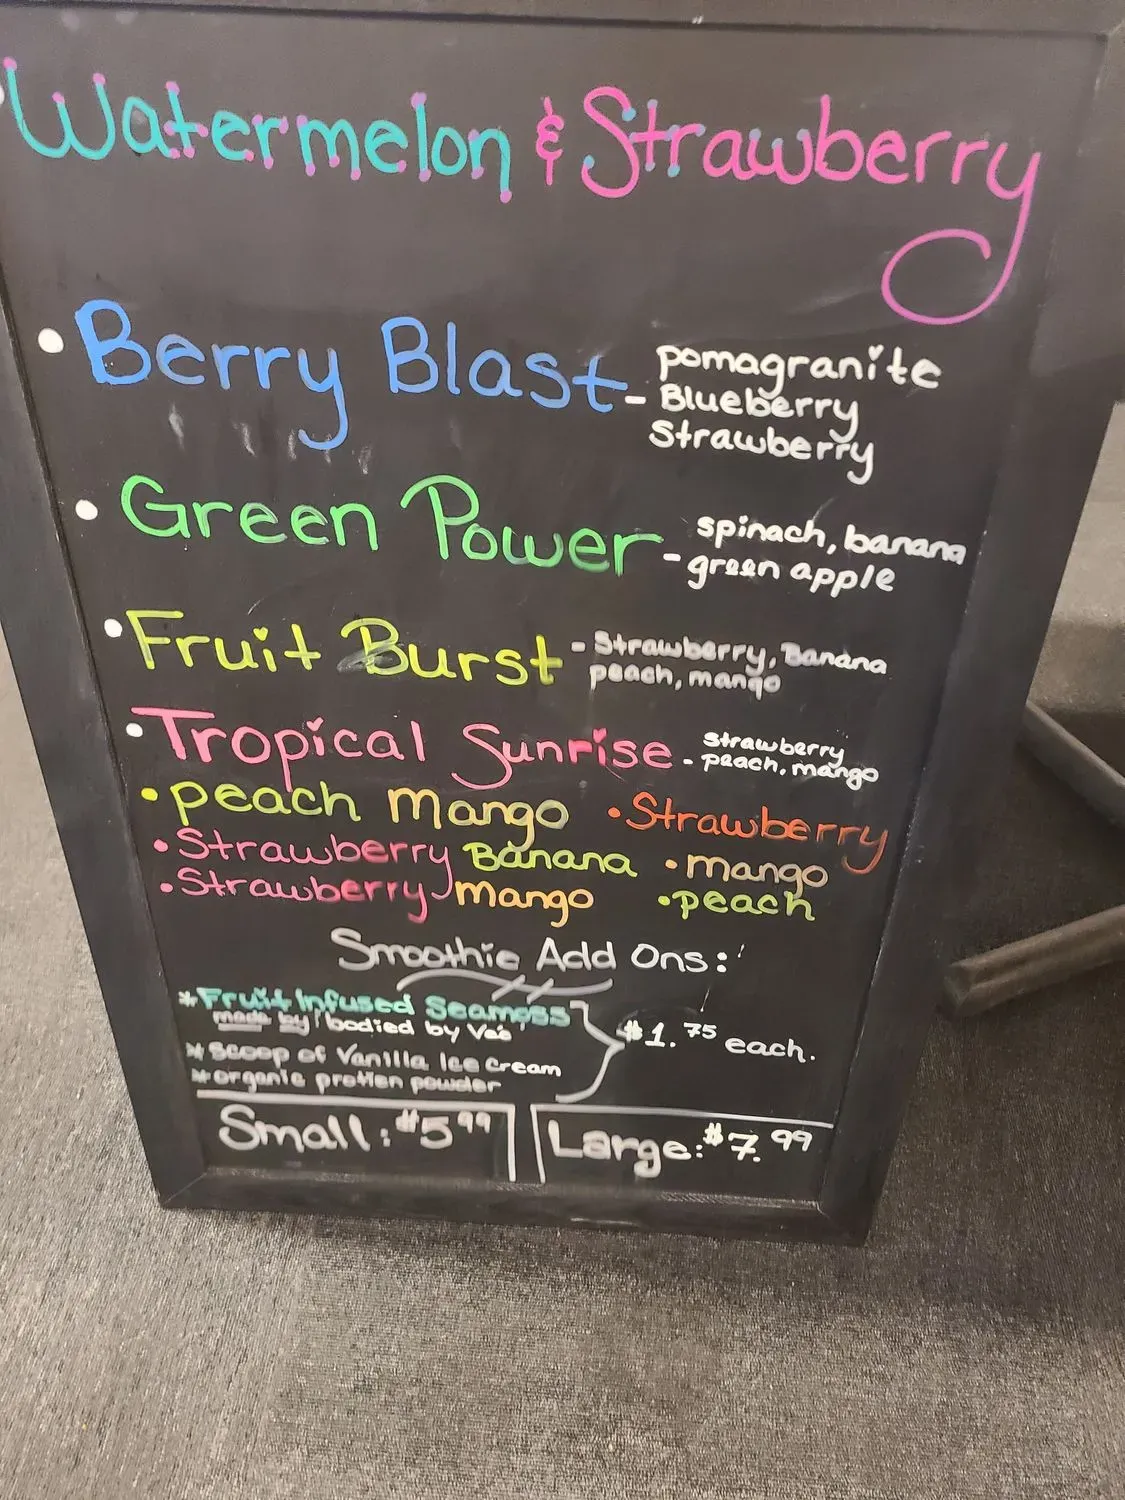 Watermelon & Strawberry
• Berry Blast - pomagranite
Blueberry
Strawberry
• Green Power - spinach, banana
green apple
• Fruit Burst - Strawberry, Banana
peach, mango
• Tropical Sunrise - strawberry
peach, mango
• peach mango • Strawberry
• Strawberry Banana • mango
• Strawberry mango • peach
Smoothie Add Ons:
* Fruit Infused Seamoss
made by bodied by
* scoop of Vanilla Ice Cream
* organic protien powder
$1.75 each.
Small: $5.99 Large: $7.99